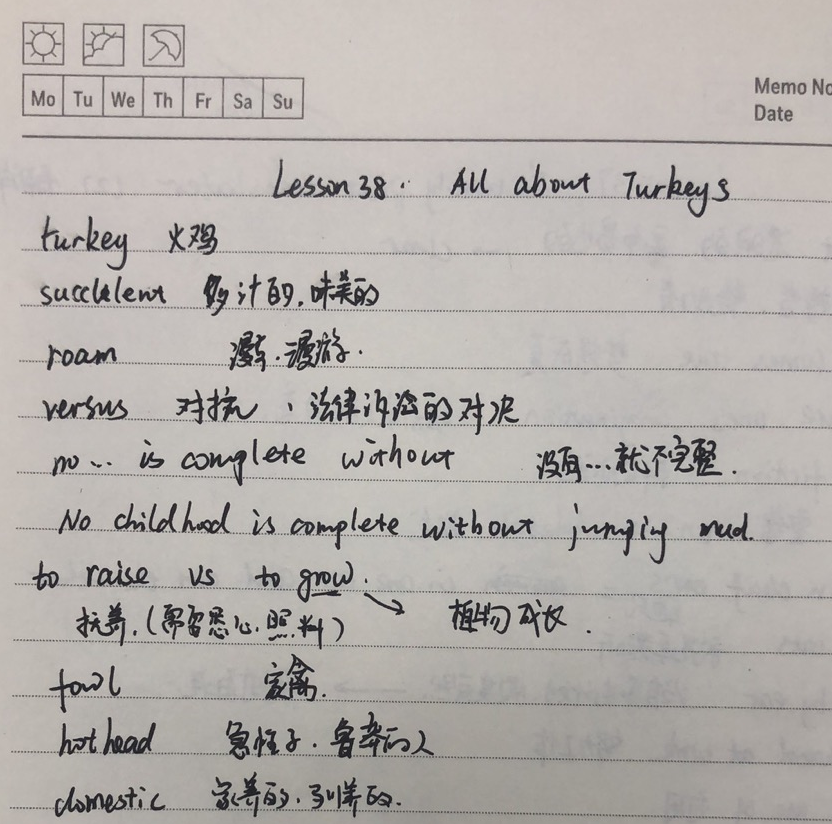 Mo Tu We Th Fr Sa Su
Memo No
Date
Lesson 38. All about Turkeys
turkey 火鸡
succulent 多汁的,味美的
roam 漫游.
versus 对抗、法律诉讼的对决
no... is complete without 没有...就不完整.
No childhood is complete without jumpig mud.
to raise vs to grow.
抚养.(需留悉心.照料) 植物成长.
fowl 家禽.
hothead 急性子.鲁莽的人
domestic 家养的.驯养的.